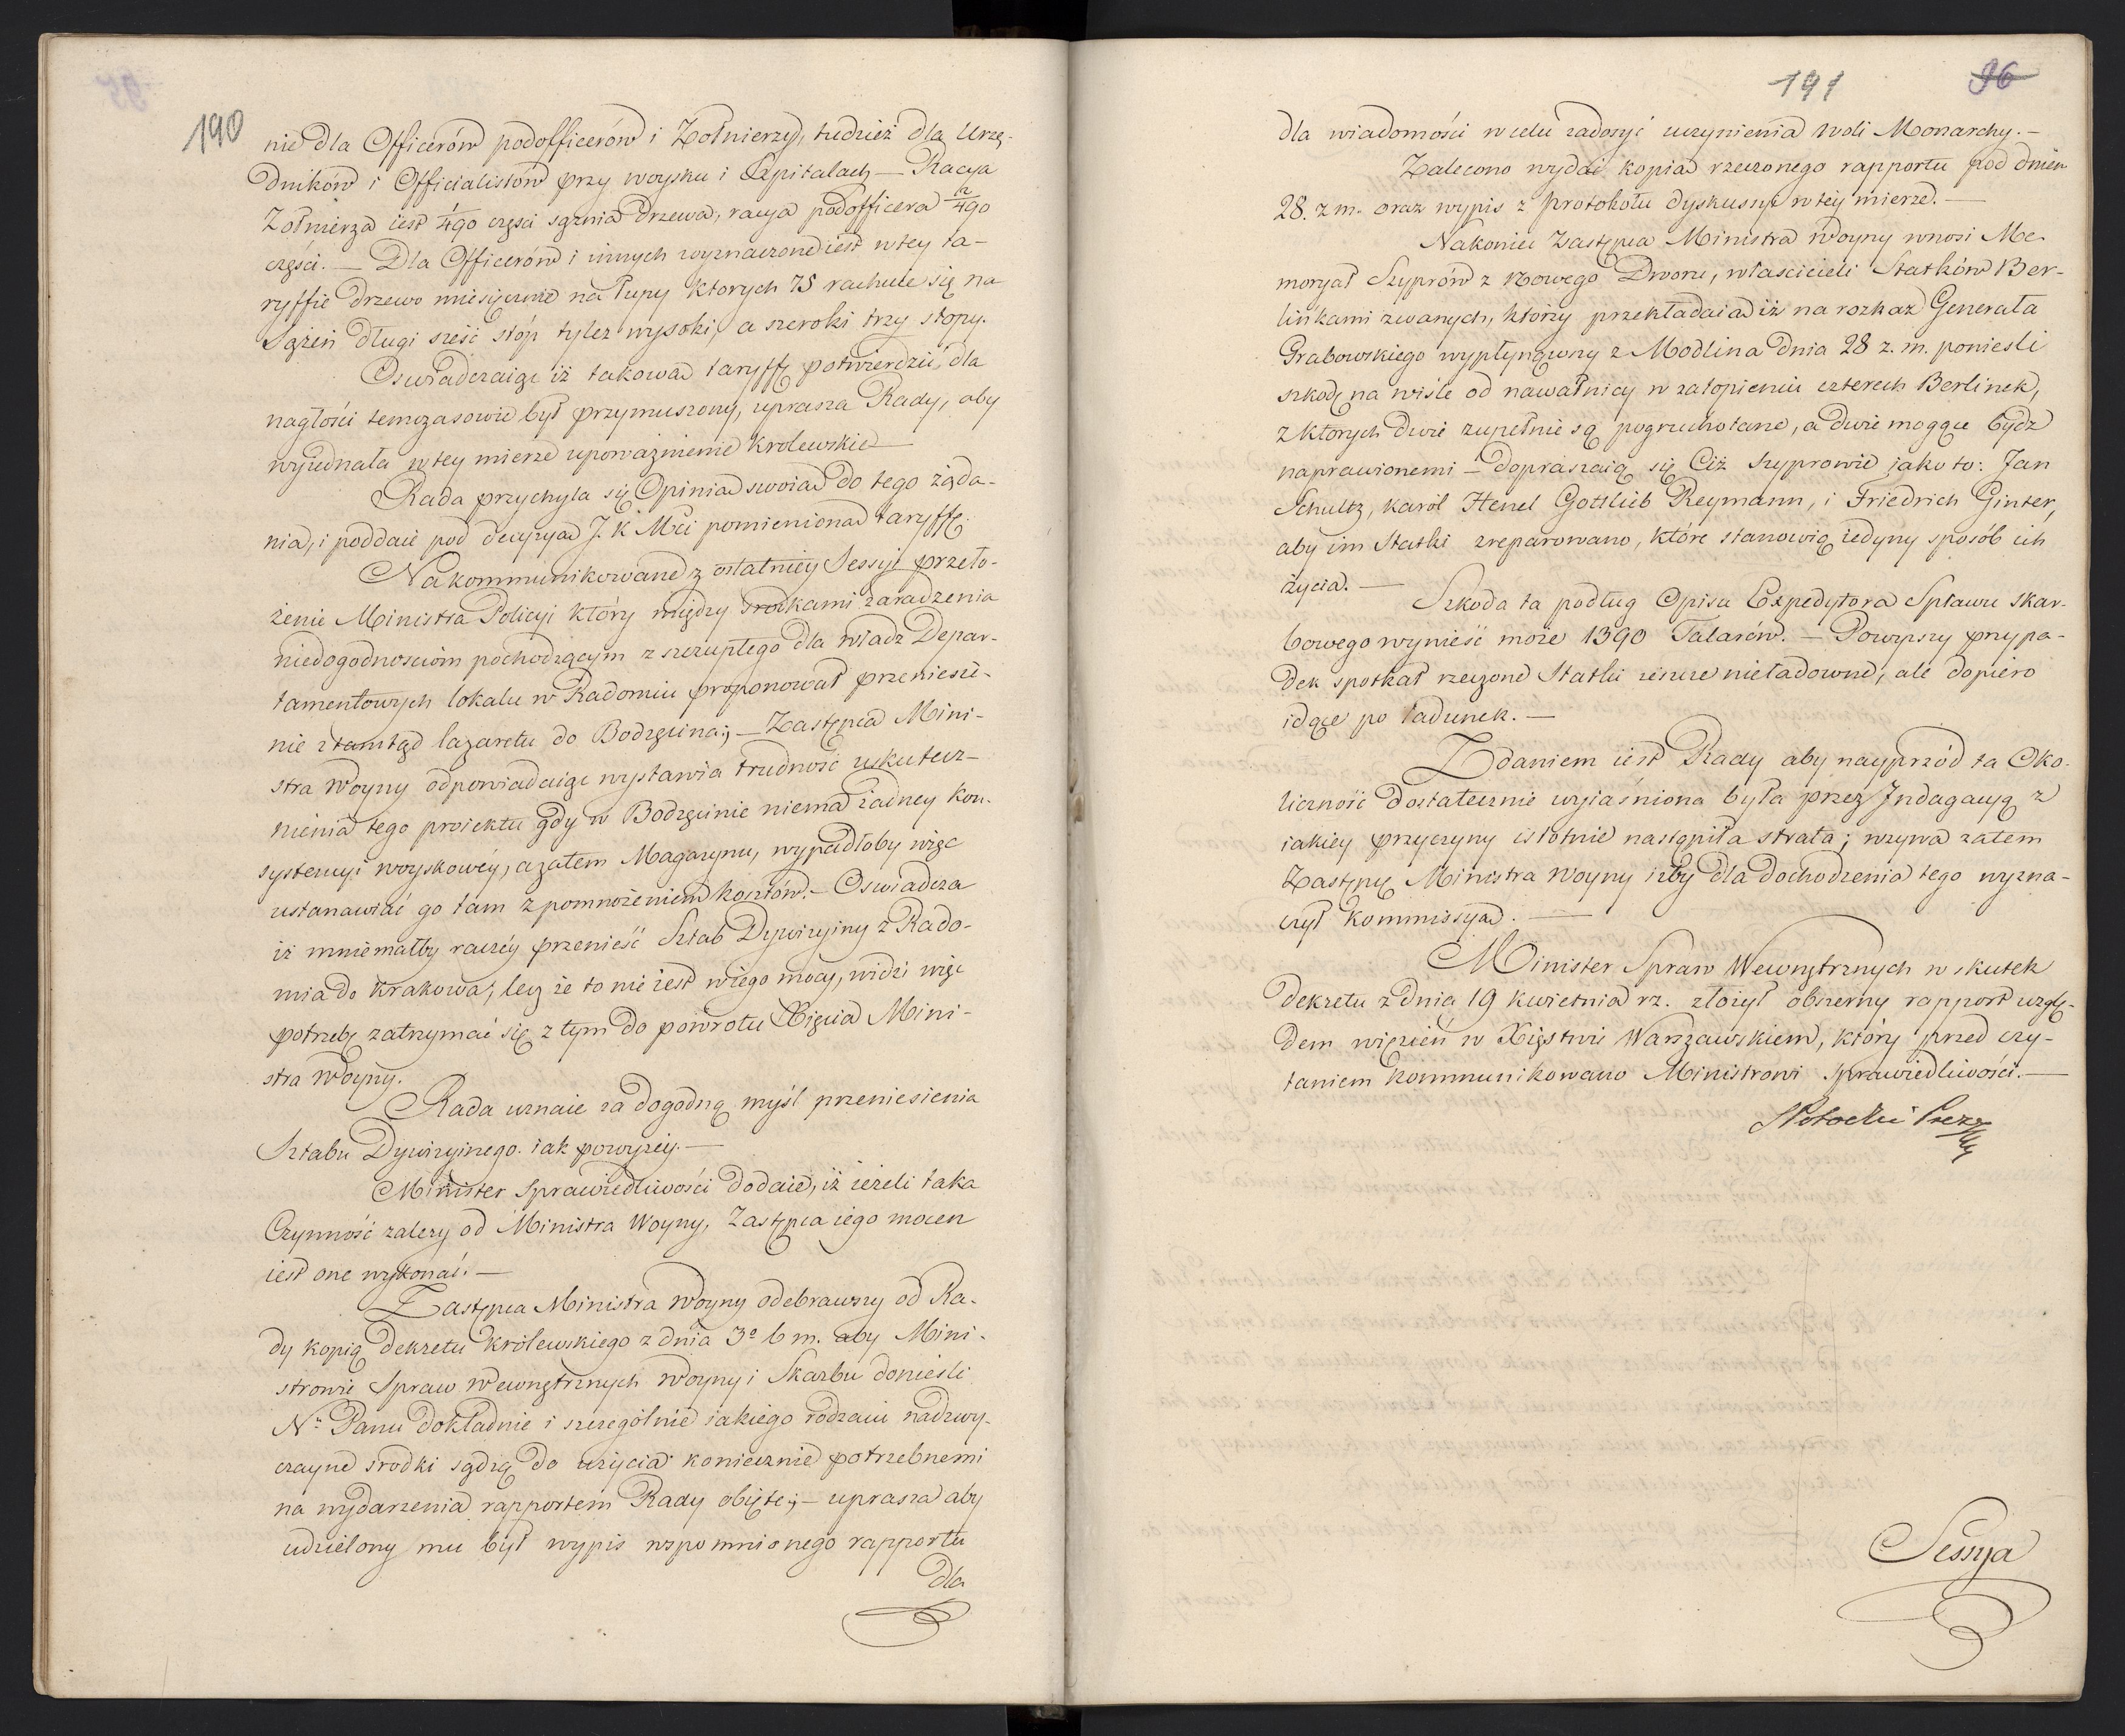 190
nie dla Officerów podofficerów i Żołnierzy, tudzież dla Urzę-
dników i Officialistów przy woysku i Szpitalach — Racya
Żołnierza iest 1/4go częsci sążnia drzewa, racya podofficera 2/4go
części. — Dla Officerów i innych wyznaczone iest w tey ta-
ryffie drzewo miesięcznie na łupy ktorych 75 rachuie się na
Sążeń długi sześć stóp tyleż wysoki, a szeroki trzy stopy.
Oswiadczaiąc iż takową taryffę potwierdzić, dla
nagłości temczasowie był przymuszony, uprasza Rady, aby
wyiednała w tey mierze upoważnienie Krolewskie
Rada przychyla się Opinią swoią do tego żąda-
nia, i poddaie pod decyzyą J. K Mci pomienioną taryffę.
Na kommunikowane z ostatniey Sessyi przeło-
żenie Ministra Policyi który między srodkami zaradzenia
niedogodnosciom pochodzącym z szczupłego dla władz Depar-
tamentowych lokalu w Radomiu proponował przeniesie-
nie ztamtąd lazaretu do Bodzęcina; — Zastępca Mini-
stra Woyny odpowiadaiąc wystawia trudność uskutecz-
nienia tego proiektu gdy w Bodzęcinie niema żadney kon-
systencyi woyskowey, a zatem Magazynu, wypadłoby więc
ustanawiać go tam z pomnożeniem kosztów. — Oswiadcza
iż mniemałby raczéy przenieść Sztab Dywizyiny z Rado-
mia do Krakowa, lecz że to nie iest w iego mocy, widzi więc
potrzebę zatrzymać się z tym do powrotu Xięcia Mini-
stra Woyny.
Rada uznaie za dogodną myśl przeniesienia
Sztabu Dywizyinego iak powyżey. —
Minister Sprawiedliwości dodaie, iż ieżeli taka
Czynność zależy od Ministra Woyny, Zastępca iego mocen
iest one wykonać. —
Zastępca Ministra Woyny odebrawszy od Ra-
dy kopią dekretu królewskiego z dnia 3o b m. aby Mini-
strowie Spraw Wewnętrznych Woyny i Skarbu donieśli
N. Panu dokładnie i szczególnie iakiego rodzaiu nadzwy-
czayne srodki sądzą do użycia koniecznie potrzebnemi
na wydarzenia rapportem Rady obięte; — uprasza aby
udzielony mu był wypis wspomnionego rapportu
dla
191
96
dla wiadomości w celu zadosyć uczynienia woli Monarchy. —
Zalecono wydać kopią rzeczonego rapportu pod dniem
28. z m. oraz wypis z protokołu dyskussyi w tey mierze. —
Nakoniec Zastępca Ministra Woyny wnosi Me-
moryał Szyprów z Nowego Dworu, właścicieli Statków Ber-
linkami zwanych, którzy przekładaią iż na rozkaz Generała
Grabowskiego wypłynąwszy z Modlina dnia 28 z. m. poniesli
szkodę na wiśle od nawałnicy w zatopieniu czterech Berlinek,
z ktorych dwie zupełnie są pogruchotane, a dwie mogące bydz
naprawionemi — dopraszaią się Ciż Szyprowie jako to: Jan
Schultz, Karol Henel Gottlieb Reymann, i Friedrich Ginter,
aby im Statki zreparowano, które stanowią iedyny sposób ich
życia. —
Szkoda ta podług Opisu Expedytora Spławu skar-
bowego wynieść może 1390 Talarów. — Powyższy przypa-
dek spotkał rzeczone Statki ieszcze nieładowne, ale dopiero
idące po ładunek. —
Zdaniem iest Rady aby nayprzód ta Oko-
liczność dostatecznie wyiaśniona była przez Indagacyą z
iakiey przyczyny istotnie nastąpiła strata; wzywa zatem
Zastępcę Ministra Woyny iżby dla dochodzenia tego wyzna-
czył kommissyą. —
Minister Spraw Wewnętrznych w skutek
dekretu z dnia 19 kwietnia rz. złożył obszerny rapport wzglę-
dem więzień w Xięstwie Warszawskiem, który przed czy-
taniem kommunikowano Ministrowi Sprawiedliwości. —
Potocki Prez
Sessya